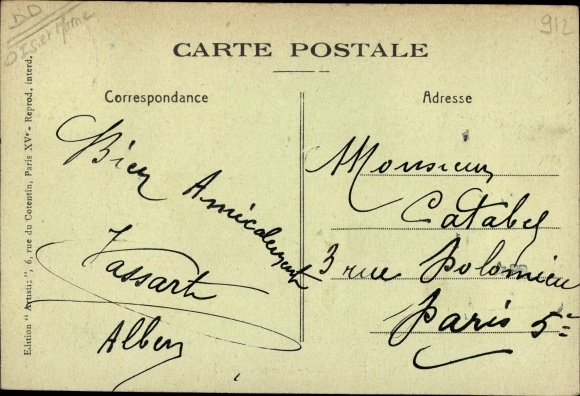 DD
Oise et Marne
912
CARTE POSTALE
Correspondance
Adresse
Bien Amicalement
Vassart
Albert
Monsieur
Catabel
3 rue Dolomieu
Paris 5e
Edition "Artistic", 6, rue du Cotentin, Paris XVe - Reprod. interd.